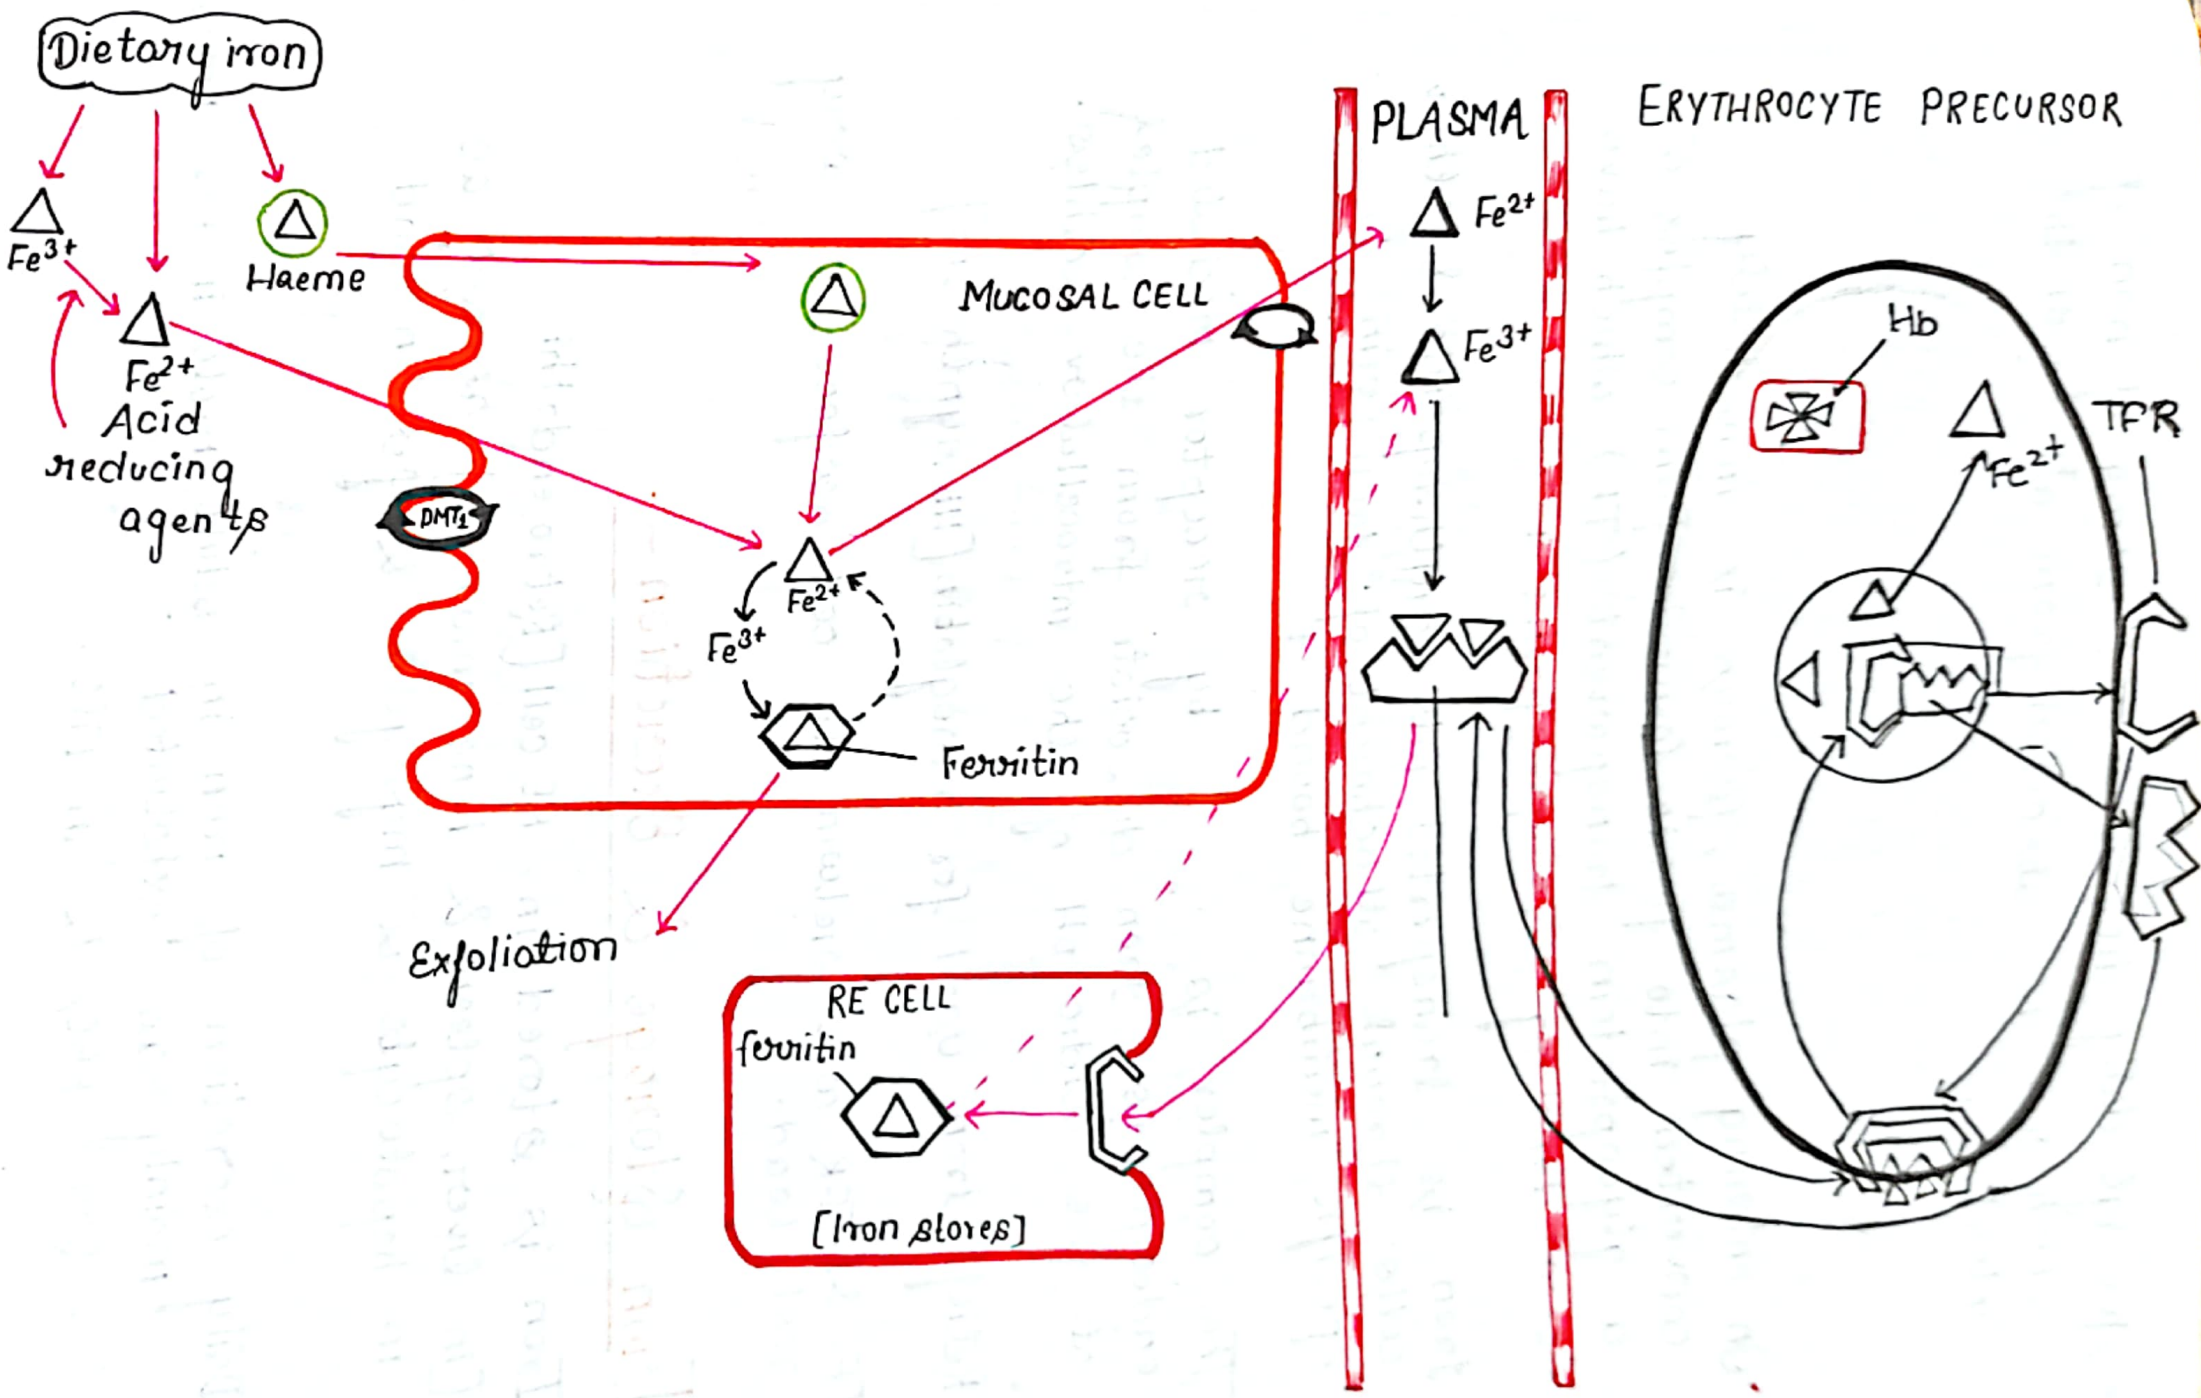 Dietary iron
Fe3+
Haeme
Fe2+
Acid
reducing
agents
DMT1
MUCOSAL CELL
Fe2+
Fe3+
Ferritin
Exfoliation
RE CELL
ferritin
[Iron stores]
PLASMA
Fe2+
Fe3+
ERYTHROCYTE PRECURSOR
Hb
Fe2+
TFR